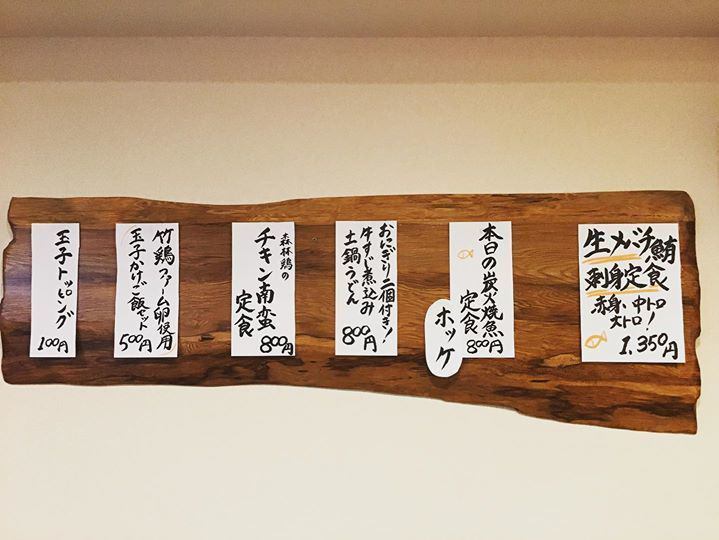 生メバチ鮪
刺身定食
赤身、中トロ
大トロ!
1,350円
本日の炭火焼魚
定食
800円
ホッケ
おにぎり二個付き!
牛すじ煮込み
土鍋うどん
800円
森林鶏の
チキン南蛮
定食
800円
竹鶏ファーム卵使用
玉子かけご飯セット
500円
玉子トッピング
100円